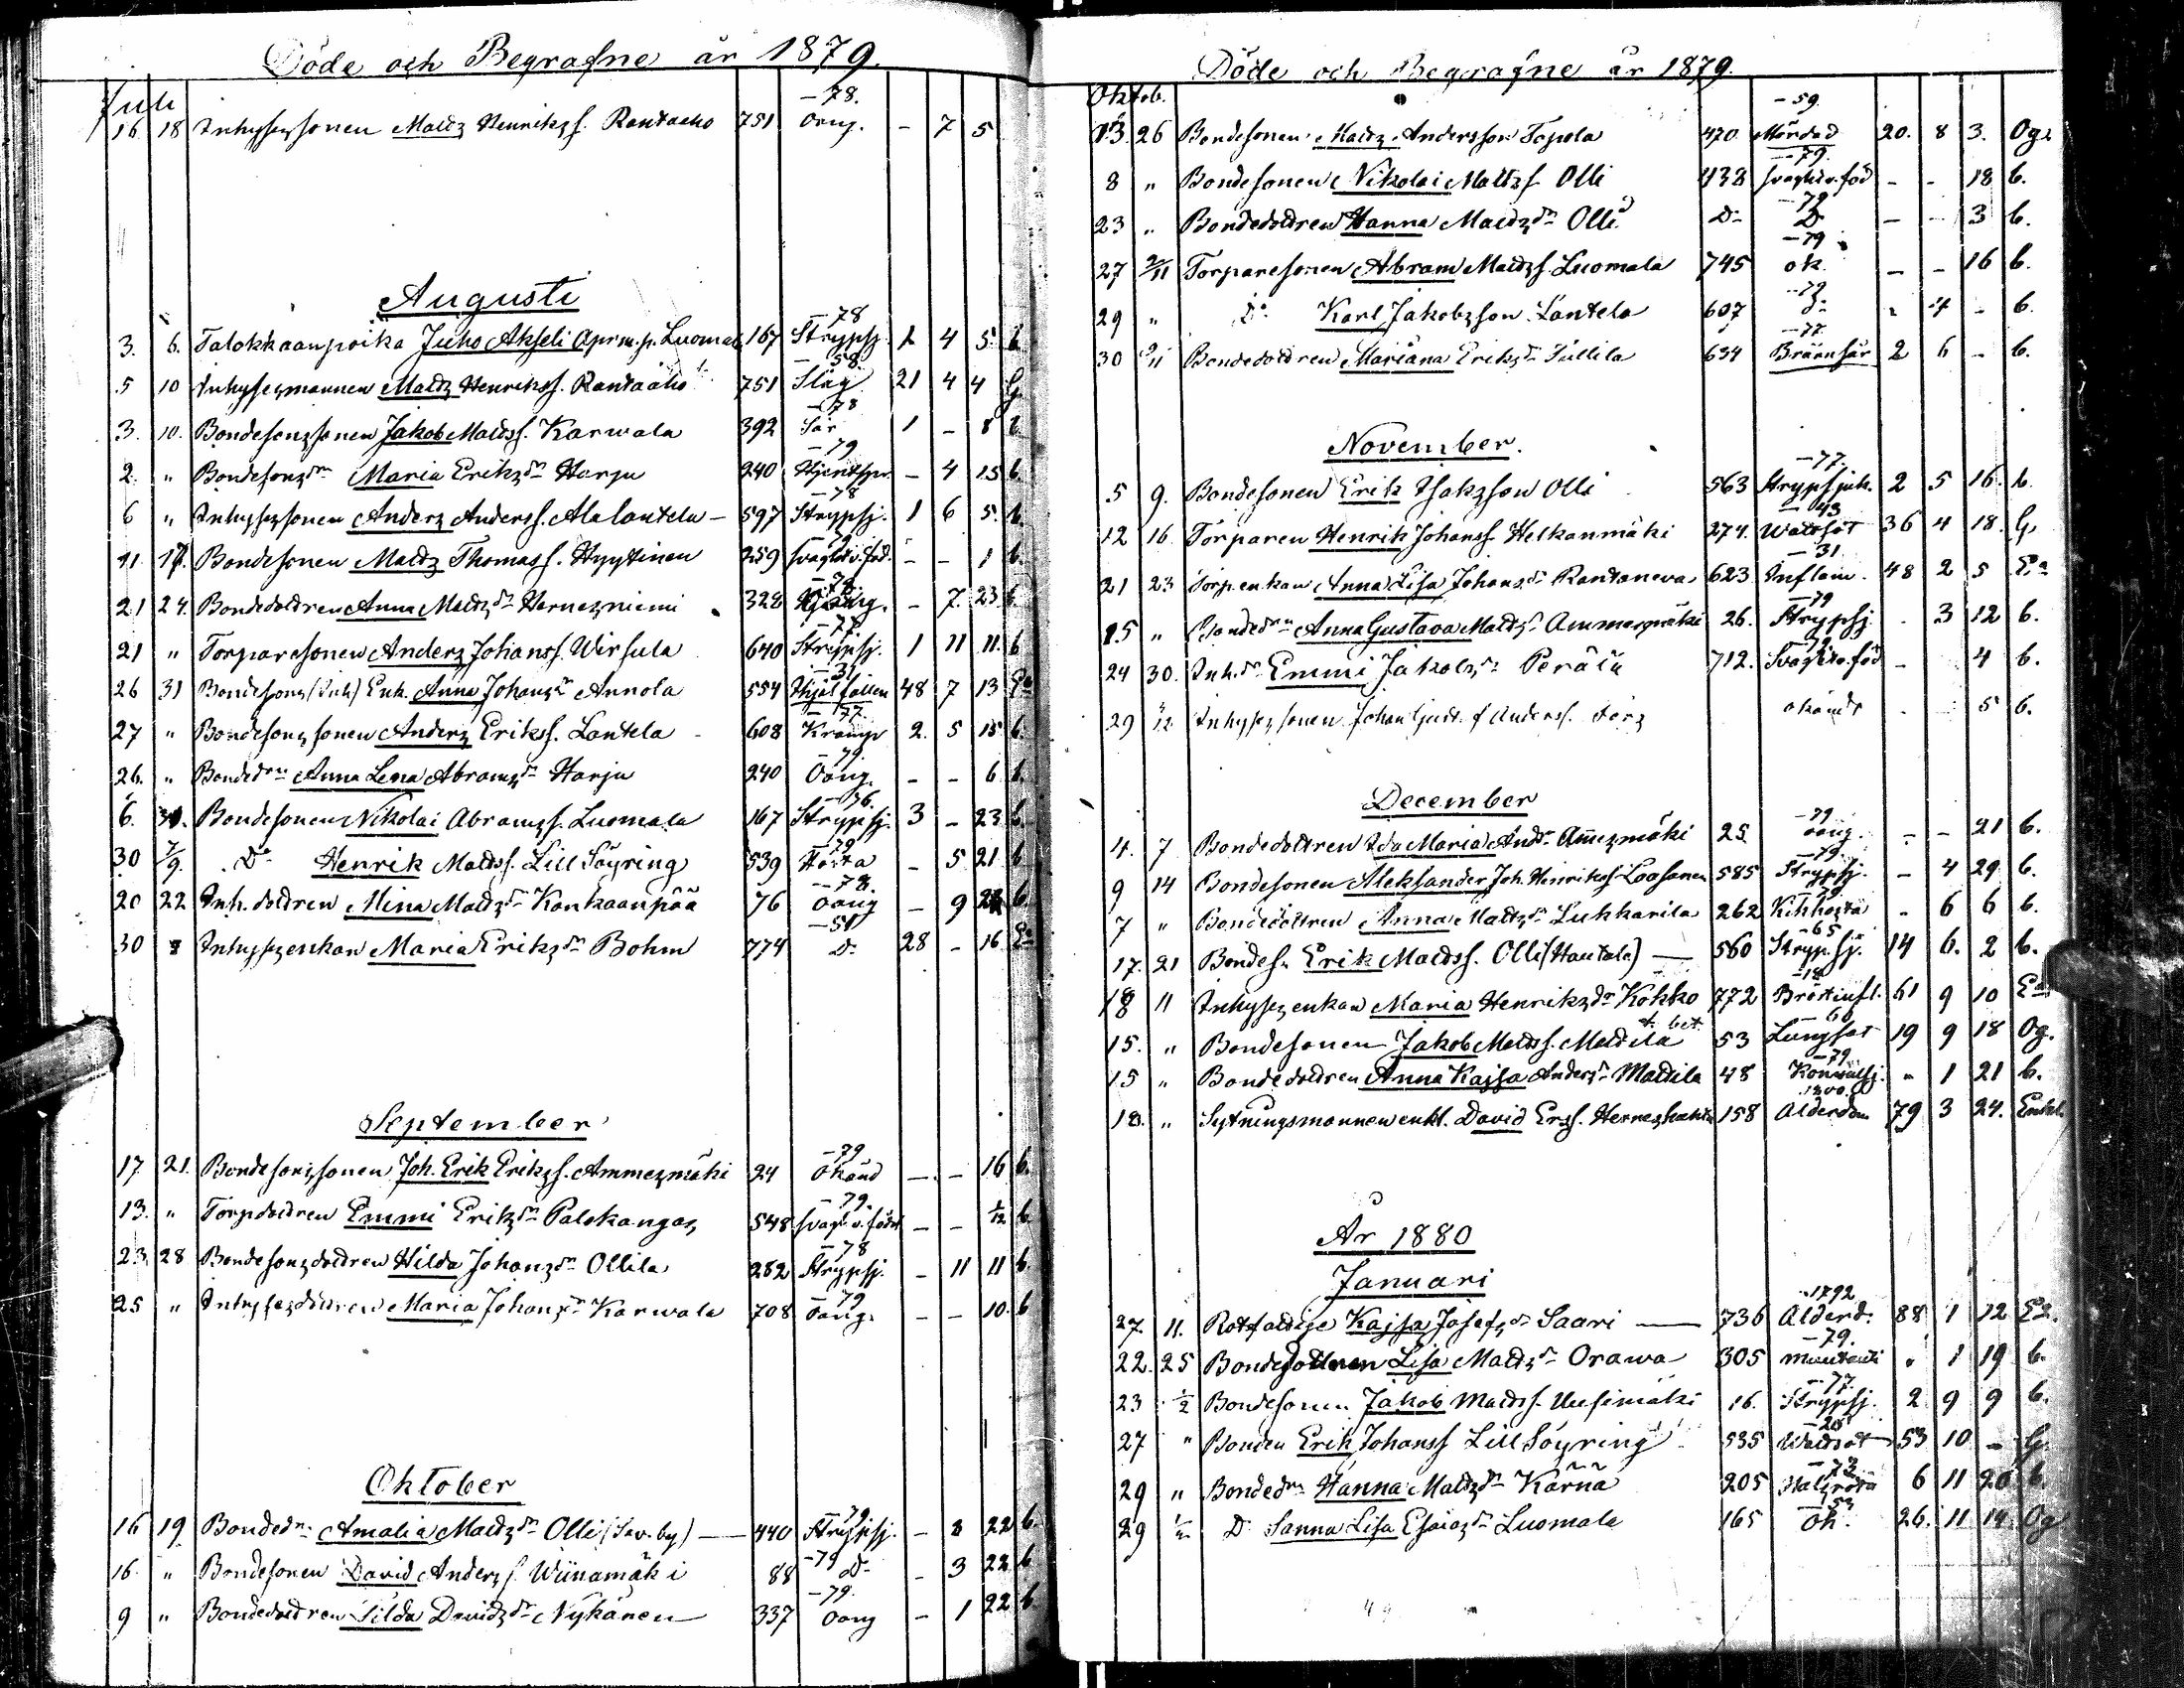 Döde och Begrafne år 1879.
Juli
16 18 Inhysessonen Matts Henrikss. Rantaaho 751 -78. Oang. - 7 5
Augusti
3. 6. Talokkaanpoika Juho Akseli Apr.m.p. Luomala 167 -78 Strypsj. 1 4 5 b.
5 10 Inhysesmannen Matts Henrikss. Rantaaho 751 -58 Slag 21 4 4 G.
3. 10. Bondesonssonen Jakob Matss. Karwala 392 -78 Sår 1 - 8 b.
2. " Bondesonsdn Maria Eriksdn Harju 240 -79 - 4 15 b.
6 " Inhysessonen Anders Anderss. Alalantela - 597 -78 Strypsj. 1 6 5. b.
11 17. Bondesonen Matts Thomass. Hyytinen 259 -79 svaghet v. föd. - - 1 b.
21 24. Bondedottren Anna Mattsdn Harnesniemi 328 -78 - 7. 23 b.
21 " Torparesonen Anders Johanss. Wirsula 640 -77 Strypsj. 1 11 11. b
26 31 Bondesons (Inh) Enk. Anna Johansdn Annola 554 -31 Ihjälfallen 48 7 13 Ea
27 " Bondesonssonen Anders Erikss. Lantela - 608 -77 Kramp 2. 5 15 b.
26. " Bondedn Anna Lena Abramsdn Harju 240 -79. Oang. - - 6 b.
6. 31. Bondesonen Nikolai Abramss. Luomala 167 -76. Strypsj. 3 - 23 b.
30 7/9. Do Henrik Matss. Lill Söyring 539 -79 Hosta - 5 21 b
20 22 Inh. dottren Mina Mattsdn Kankaanpää 76 -78. oang - 9 b
30 " Inhysesenkan Maria Eriksdn Bohm 774 -51 Do 28 - 16 Ea
September
17 21. Bondesonssonen Joh. Erik Erikss. Ammesmäki 24 -79 Okänd - - 16 b.
13. " Torpdottren Emmi Eriksdn Palokangas 548 -79. svagh. v. födsl - - 1/12 b.
23 28 Bondesonsdottren Hilda Johansdn Ollila 282 -78 Strypsj. - 11 11 b.
25 " Inhysesdottren Maria Johansdn Karwala 708 -79 Oang. - - 10. b
Oktober
16 19. Bondedn Amalia Mattsdn Olli (Sav. by) - 440 79 Strypsj. - 3 22 b.
16. " Bondesonen David Anderss. Wiinamäki 88 -79 Do - 3 22 b
9 " Bondedottren Hilda Davidsdn Nykänen 337 -79. Oang - 1 22 b.
Döde och Begrafne år 1879.
Oktob.
13. 26 Bondesonen Matts Andersson Topola 470. -59. Mördad 20. 8 3. Og.
8 " Bondesonen Nikolai Mattss Olli 438 -79. svaghet v. föd - - 18 b.
23 " Bondedottren Hanna Mattsdn Olli Do -79 Do - - 3 b.
27 2/11 Torparesonen Abram Mattss. Luomala 745 -79 ok. - - 16 b.
29 " Do Karl Jakobsson Lantela 607 -79 Do " 4 - b.
30 9/11 Bondedottren Mariana Eriksdn Jullila 634 -77. Brännsår 2 6 - b.
November.
5 9. Bondesonen Erik Isaksson Olli 563 -77. Strypsjuk. 2 5 16. b.
12 16 Torparen Henrik Johanss Helkanmäki 274. -43 Wattsot 36 4 18. G.
21 23 Torp.enkan Anna Lisa Johansdn Rantaneva 623 -31 Inflam. 48 2 5 Ea
15 " Bondedn Anna Gustava Mattsdn Ammesmäki 26. -79 Strypsj. . 3 12 b.
24 30. Inh. dn Emmi Jakobsdn Perälä 712. -79 Svaghet v. föd - 4 b.
29 Inhysessonen Johan Gust. f Anderss. okändt 5 b.
December
4. 7 Bondedottren Ida Maria Andn Ammesmäki 25 -79 oang. - - 21 b.
9 14 Bondesonen Aleksander Joh. Hinrikss Loosanen 585 -79. Strypsj. - 4 29 b.
7 " Bondedottren Anna Mattsdn Lukkarila 262 -79 Kikhosta - 6 6 b.
17. 21 Bondes. Erik Matss. Olli (Hautala) - 560 -65 Stryp.sj. 14 6. 2 b.
18 " Inhysesenkan Maria Henriksdn Kokko 772 -18 Bröstinfl. 61 9 10 Ea
15. " Bondesonen Jakob Mattss. Mattila 53 -60 Lungsot 19 9 18 Og.
15 " Bondedottren Anna Kajsa Andersdn Mattila 48 -79 Konvulsj. - 1 21 b.
18. " Sytningsmannen enkl. David Erss. Herneshahta 158 1800. Alderdom 79 3 24. Enkl.
År 1880
Januari
27. 11. Rotfattige Kajsa Josefsdn Saari - 736 -1792 Alderd. 88 1 12 Ea.
22. 25 Bondedottren Lisa Mattsdn Orawa 305 -79. " 1 19 b.
23 1/2 Bondesonen Jakob Mattss. Uusimäki 16. -77 Strypsj. 2 9 9 b.
27 " Bonden Erik Johanss Lill Söyring 535 -26 Wattsot 53 10 - G.
29 " Bondedn Hanna Mattsdn Kärnä 205 -73 Halsröta 6 11 20 b.
29 Do Sanna Lisa Esaiasdn Luomala 165 -53 Ok. 26. 11 14. Og